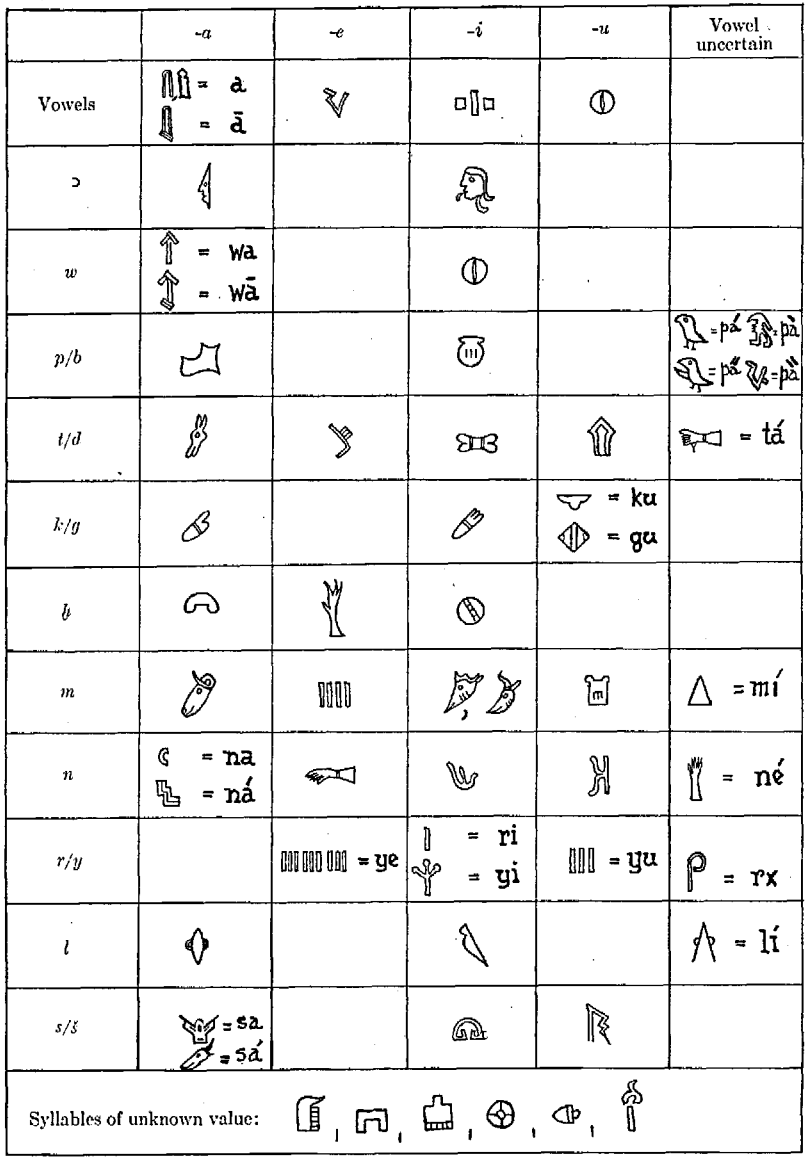 -a -e -i -u Vowel uncertain
Vowels = a
= ā
ɔ
w = wa
= wā
p/b = pá = pà
= pä́ = pä̀
t/d = tá
k/g = ku
= gu
ḫ
m , = mí
n = na = né
= ná
r/y = ye = ri = yu = rx
= yi
l = lí
s/š = sa
= sá
Syllables of unknown value: , , , , ,